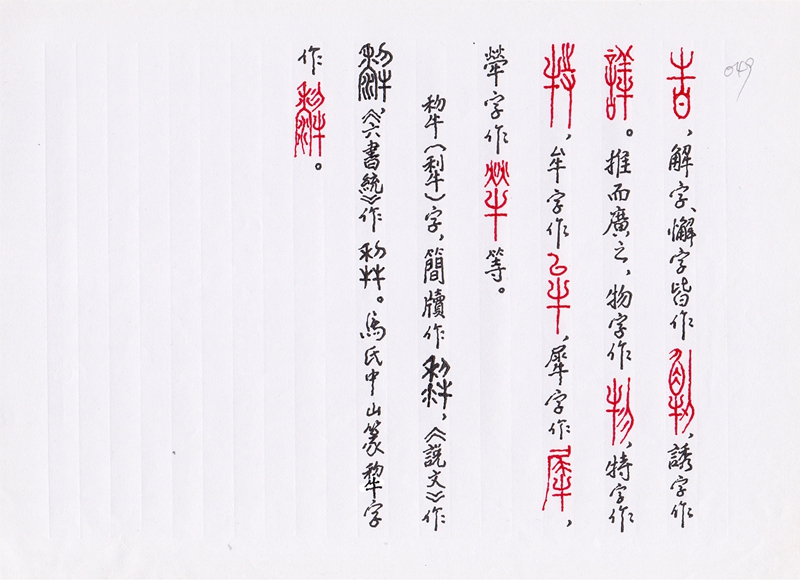 049
、解字、懈字皆作、誘字作
。推而廣之，物字作物，特字作
特，牟字作牟，犀字作犀，
犖字作犖等。
犂(犁)字，簡牘作，《說文》作
，《六書統》作。馬氏中山篆犂字
作。